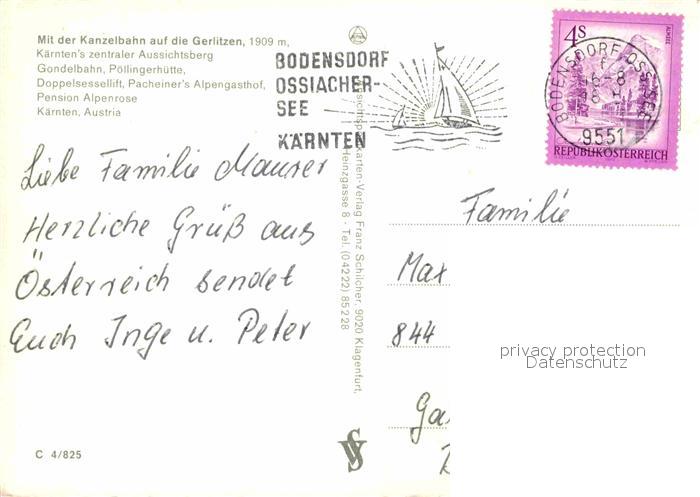 Mit der Kanzelbahn auf die Gerlitzen, 1909 m,
Kärnten's zentraler Aussichtsberg
Gondelbahn, Pöllingerhütte,
Doppelsessellift, Pacheiner's Alpengasthof,
Pension Alpenrose
Kärnten, Austria
BODENSDORF
OSSIACHER-
SEE
KÄRNTEN
4S
ALMSEE
REPUBLIK ÖSTERREICH
BODENSDORF
9551
Liebe Familie Maurer
Herzliche Grüß aus
Österreich sendet
Euch Inge u. Peter
Ansichtspostkarten-Verlag Franz Schilcher, 9020 Klagenfurt,
Heinzgasse 8 - Tel. (04222) 85228
Familie
Max
844
privacy protection
Datenschutz
C 4/825